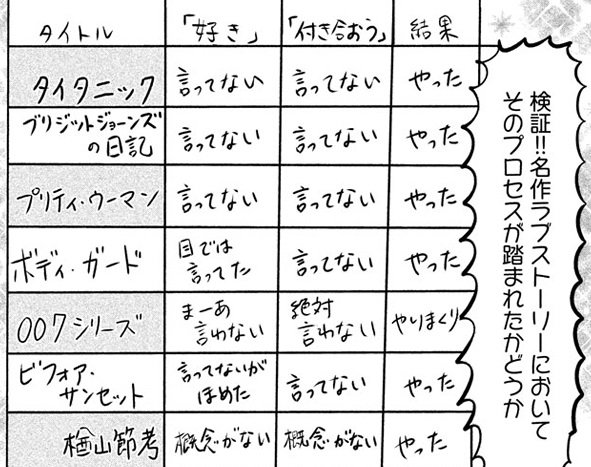 検証!!名作ラブストーリーにおいて
そのプロセスが踏まれたかどうか
タイトル 「好き」 「付き合おう」 結果
タイタニック 言ってない 言ってない やった
ブリジットジョーンズ
の日記 言ってない 言ってない やった
プリティ・ウーマン 言ってない 言ってない やった
ボディ・ガード 目では
言ってた 言ってない やった
007シリーズ まーあ
言わない 絶対
言わない やりまくり
ビフォア・
サンセット 言ってないが
ほめた 言ってない やった
楢山節考 概念がない 概念がない やった